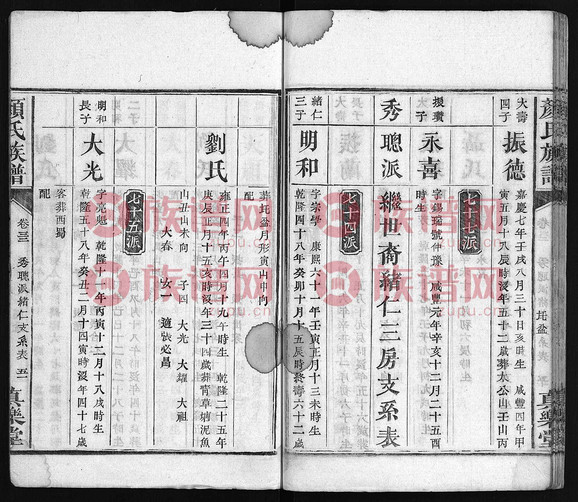 顏氏族譜
真樂堂
大濤
四子
振德
嘉慶七年壬戌八月三十日亥時生 咸豐四年甲
寅五月十八辰時沒年五十二歲葬太公山壬山丙
七十七派
援廣
長子
永喜
字錦瑞號伊豫 咸豐元年辛亥十二月二十五酉
時生
秀聰派繼世裔緒仁三房支系表
七十四派
緒仁
三子
明和
字宗學 康熙六十一年壬寅正月十三未時生
乾隆四十八年癸卯十月十五辰時終壽六十二歲
葬坵盆月形寅山申向
配
劉氏
雍正四年丙午四月十九午時生 乾隆二十五年
庚辰正月十五亥時沒年三十四歲葬霄草塘泥魚
山丑山未向 子四 大光 大燿 大祖
大春 女一 適張必昌
七十五派
明和
長子
大光
字亮彪 乾隆十一年丙寅十二月十八戌時生
乾隆五十八年癸丑二月十四寅時沒年四十七歲
客葬西蜀
配
顏氏族譜
卷三 秀聰派緒仁支系表 五一
真樂堂
族谱网